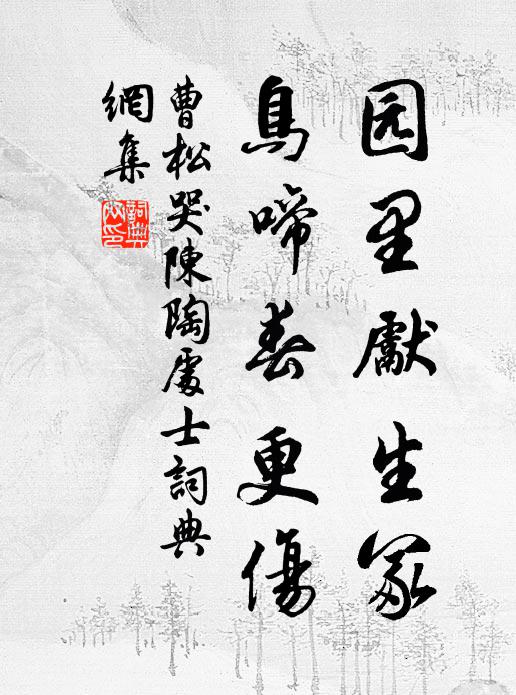 园里獻生冢
鳥啼春更傷
曹松哭陳陶處士詞典
網集
詞典网印